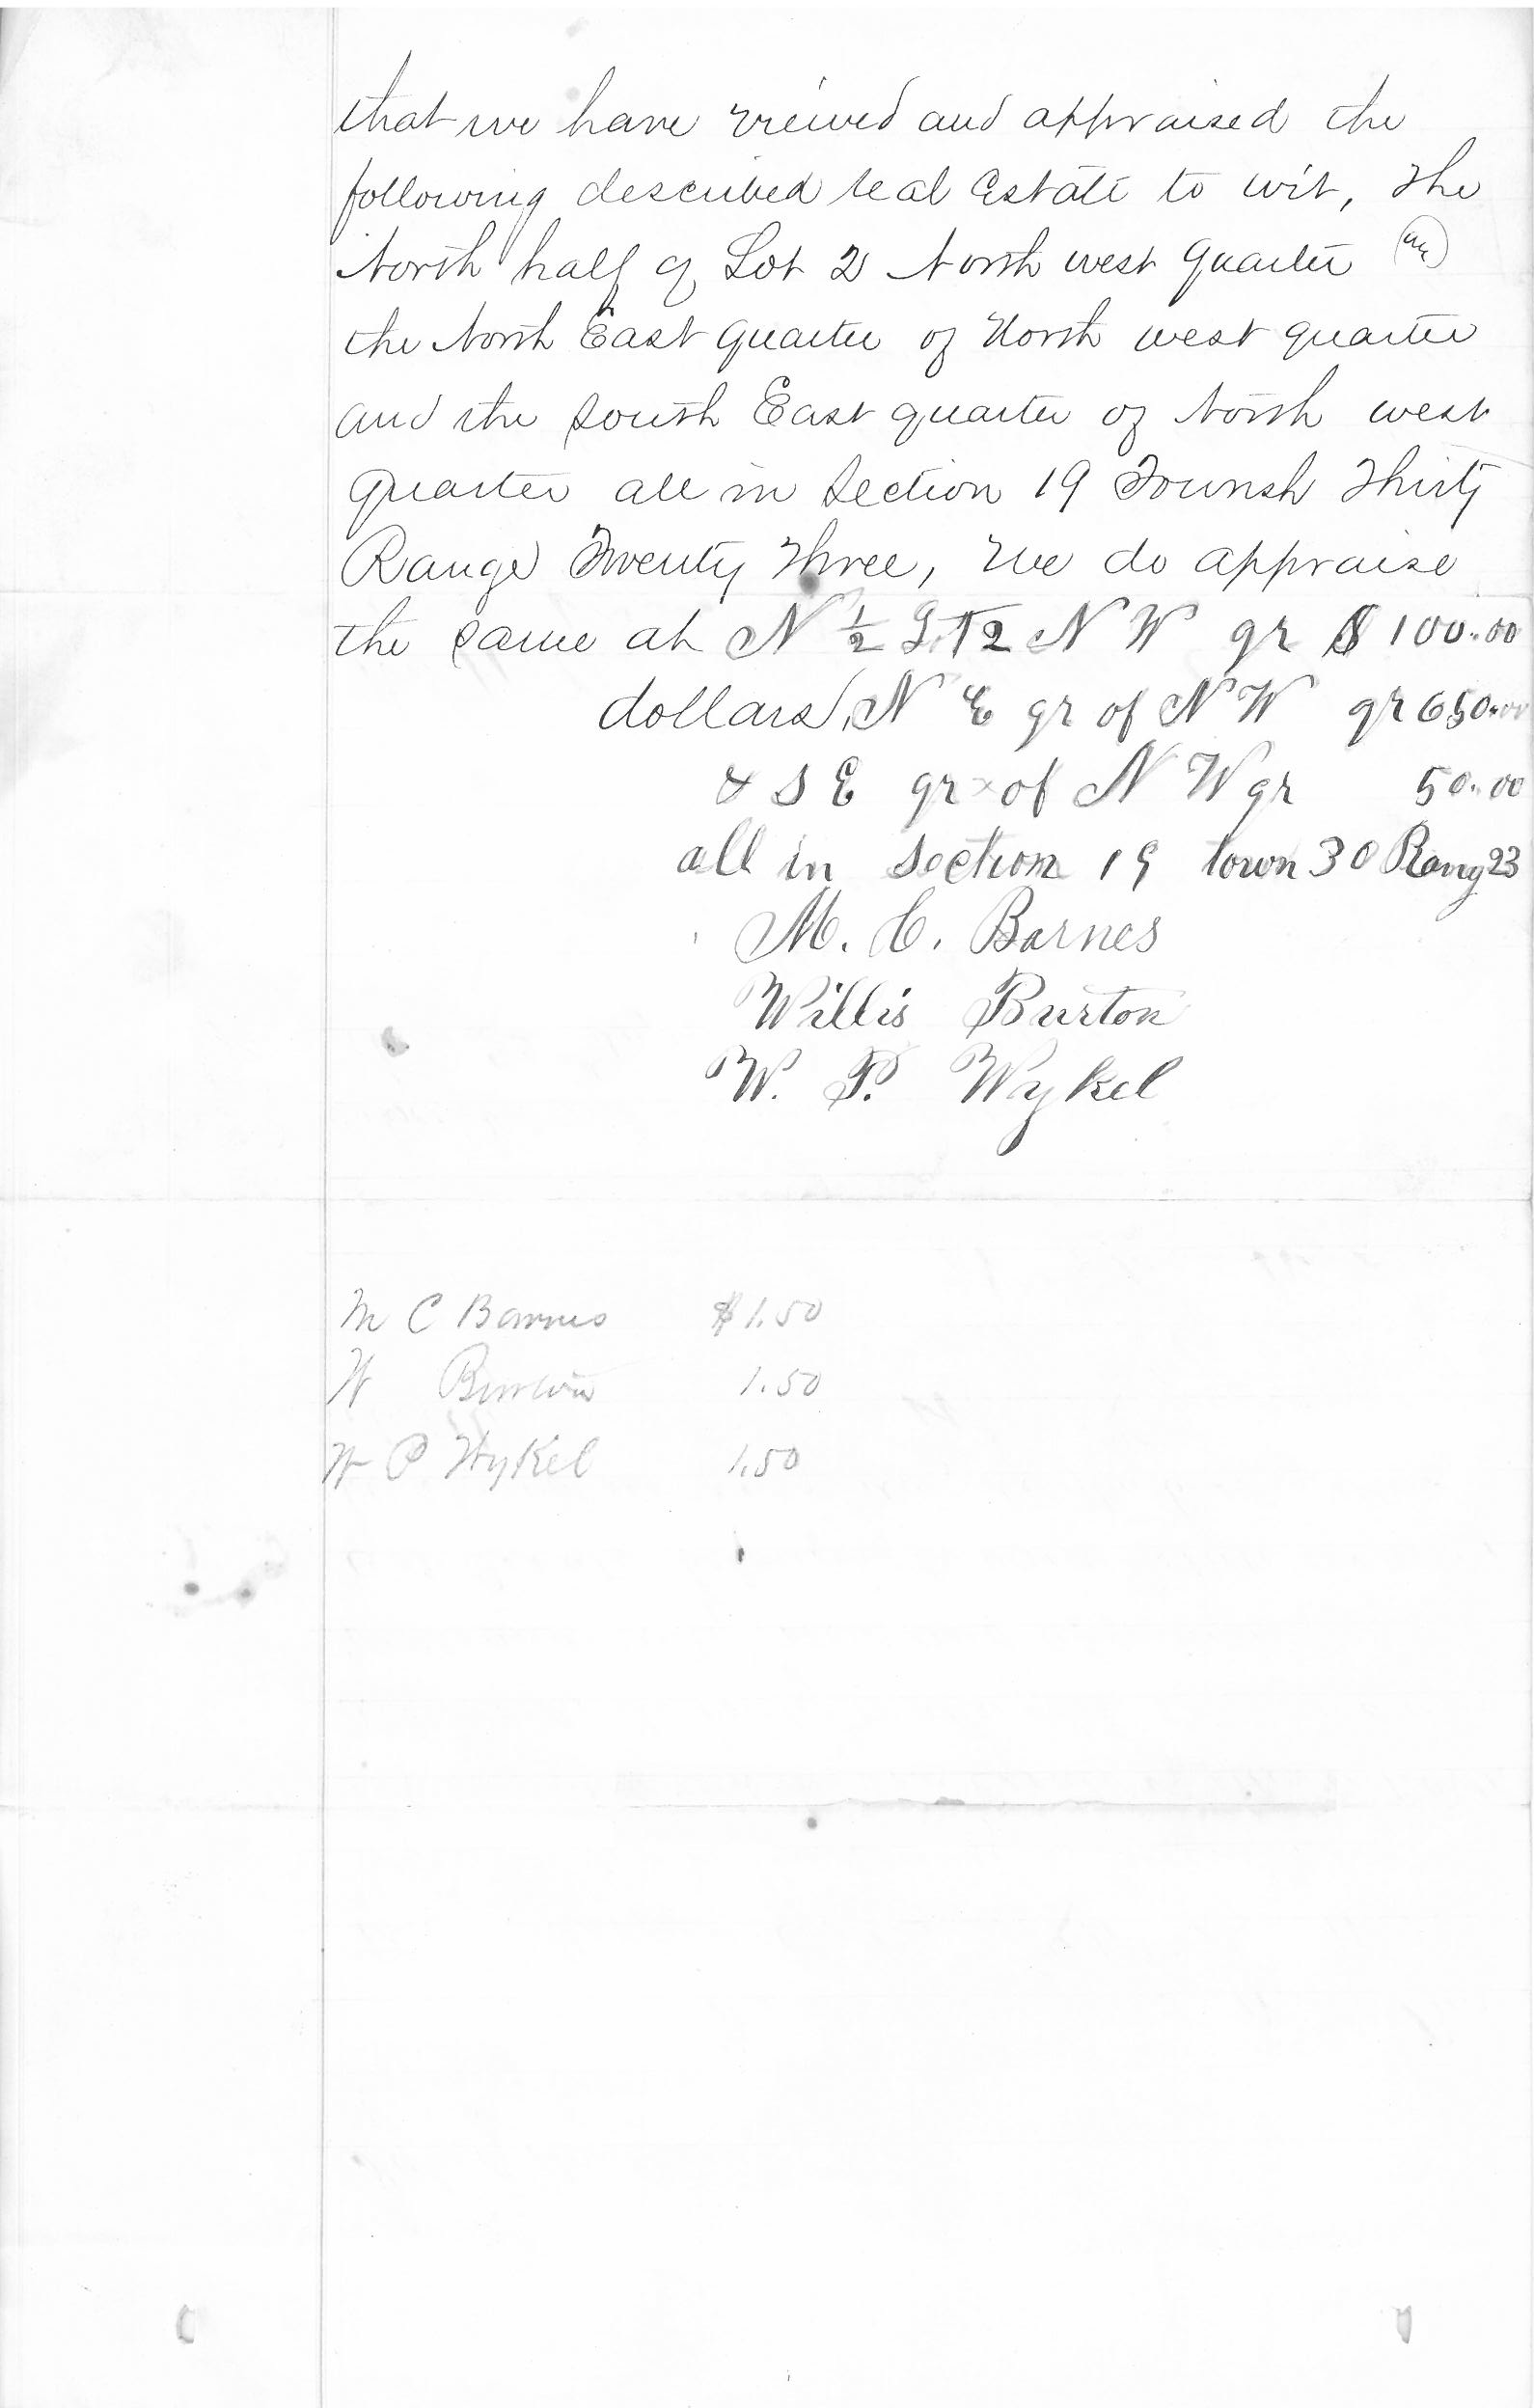 that we have viewed and appraised the
following described real Estate to wit, The
North half of Lot 2 North west Quarter
the North East Quarter of North west quarter
and the South East quarter of North west
Quarter all in Section 19 Townsh Thirty
Range Twenty Three, We do appraise
the same at N ½ Lot 2 N W qr $ 100.00
dollars, N E qr of N W qr 650.00
& S E qr of N W qr 50.00
all in section 19 town 30 Rang 23
M. C. Barnes
Willis Burton
W. P. Wykel
M C Barnes $1.50
W Burton 1.50
W P Wykel 1.50